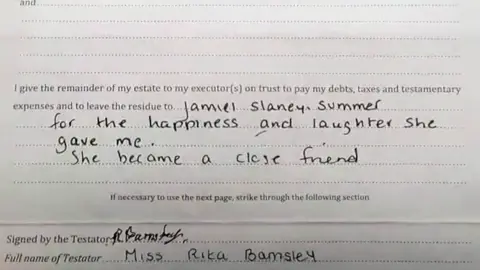 and
I give the remainder of my estate to my executor(s) on trust to pay my debts, taxes and testamentary
expenses and to leave the residue to Jamiel Slaney. Summer
for the happiness and laughter she
gave me.
She became a close friend
If necessary to use the next page, strike through the following section
Signed by the Testator R Bamsley.
Full name of Testator Miss Rita Bamsley